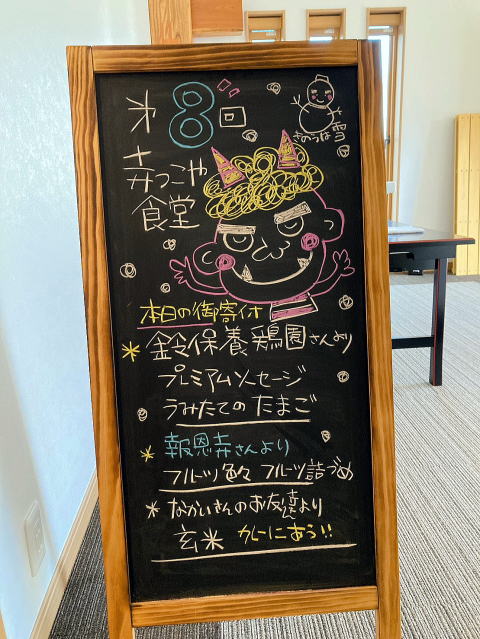 第8回
きのうは雪
寺っこや
食堂
本日の御寄付
*鈴保養鶏園さんより
プレミアムソーセージ
うみたての たまご
*報恩寺さんより
フルツ色々 フルーツ詰づめ
*なかいさんのお友達より
玄米 カレーにあう!!